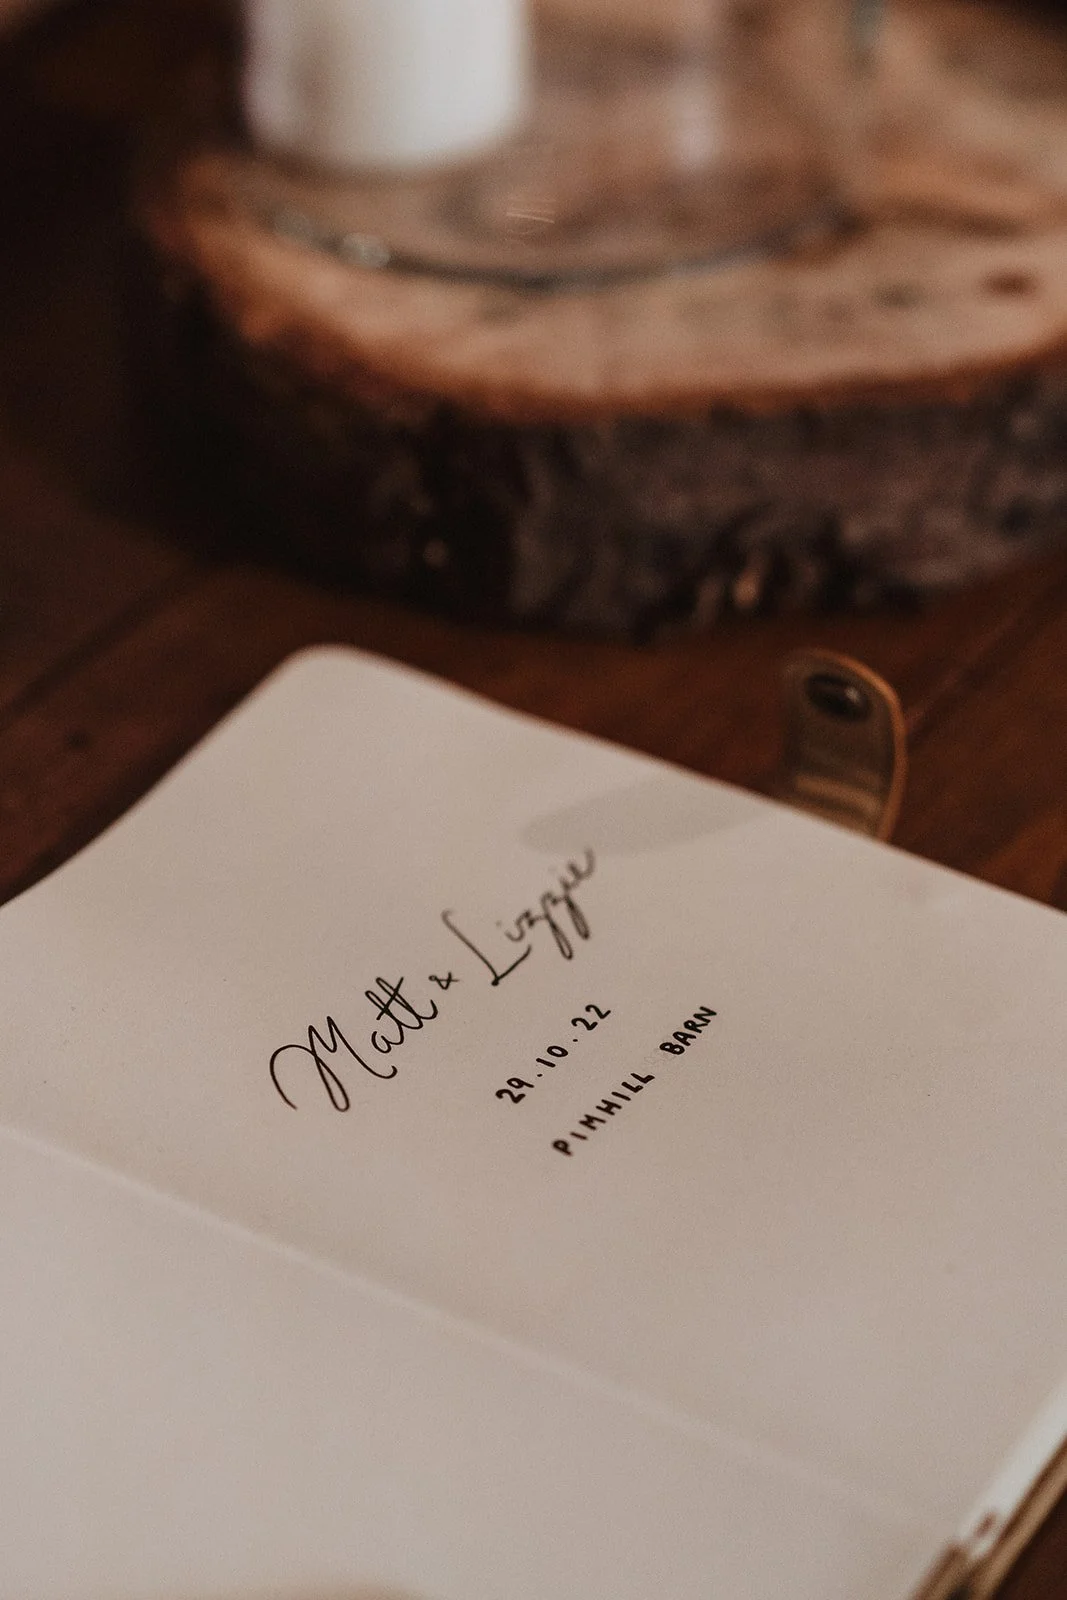 Matt & Lizzie
29.10.22
PIMHILL BARN